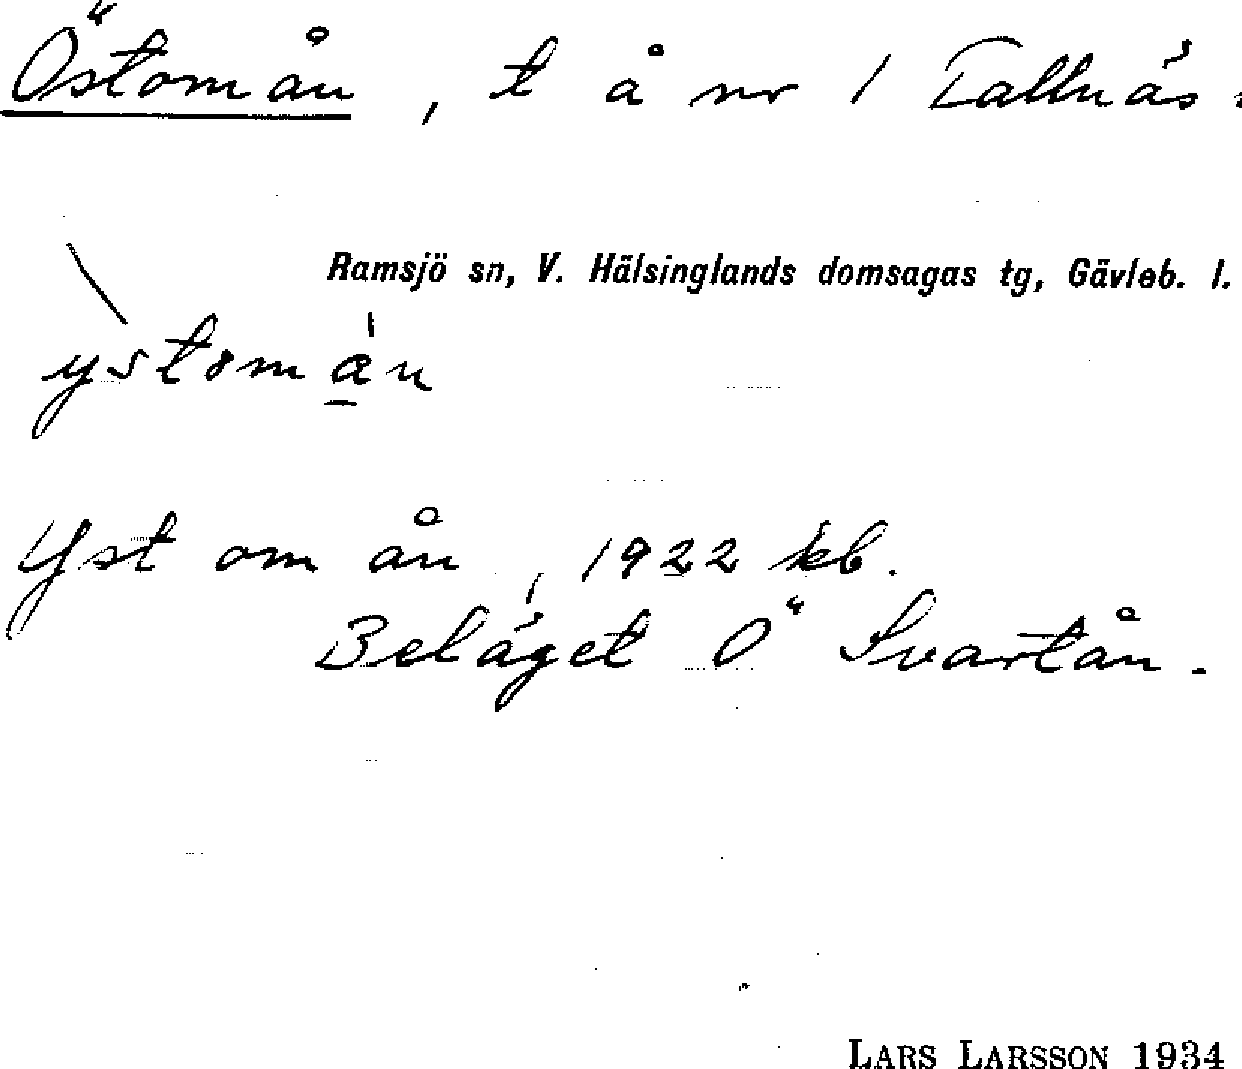 Östomån, t å nr 1 Tallnäs.
Ramsjö sn, V. Hälsinglands domsagas tg, Gävleb. l.
Yst om ån, 1922 kb.
Beläget Ö Svartån.
LARS LARSSON 1934